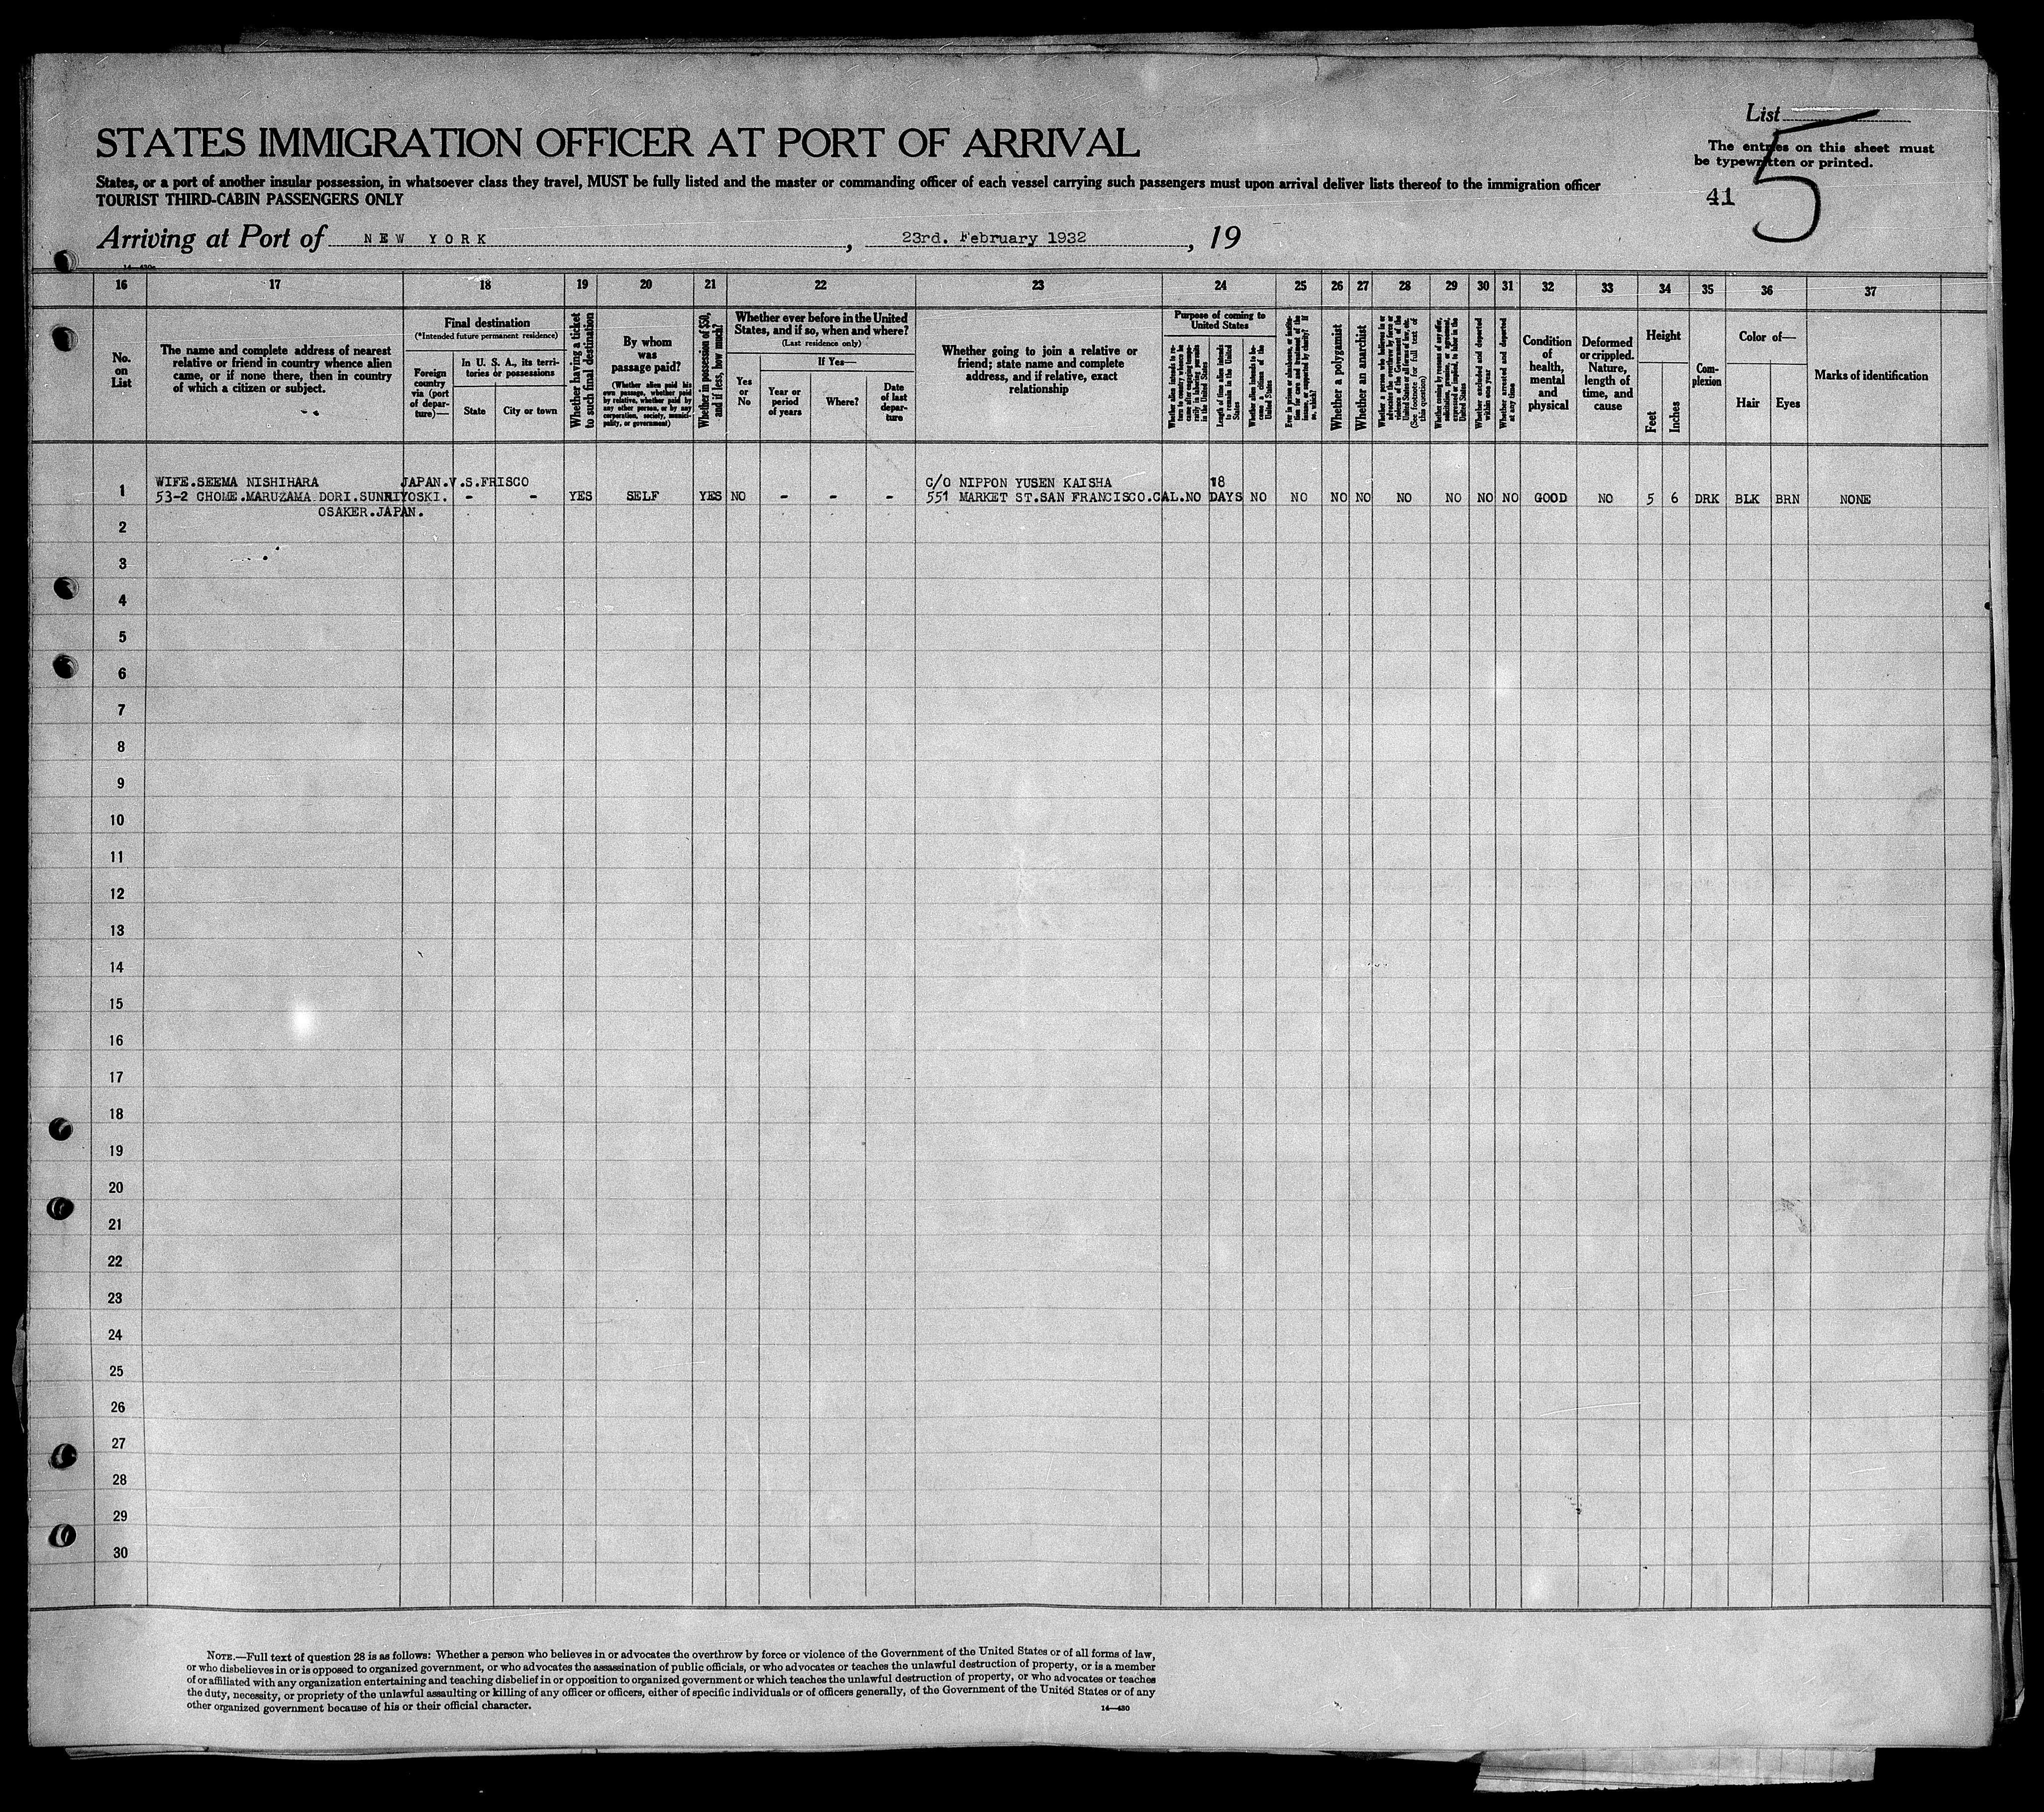 List
5
The entries on this sheet must
be typewritten or printed.
41
STATES IMMIGRATION OFFICER AT PORT OF ARRIVAL
States, or a port of another insular possession, in whatsoever class they travel, MUST be fully listed and the master or commanding officer of each vessel carrying such passengers must upon arrival deliver lists thereof to the immigration officer
TOURIST THIRD-CABIN PASSENGERS ONLY
Arriving at Port of NEW YORK, 23rd. February 1932, 19
16 17 18 19 20 21 22 23 24 25 26 27 28 29 30 31 32 33 34 35 36 37
No.
on
List
The name and complete address of nearest
relative or friend in country whence alien
came, or if none there, then in country
of which a citizen or subject.
Final destination
(*Intended future permanent residence)
Foreign
country
via (port
of depar-
ture)—
In U. S. A., its terri-
tories or possessions
State
City or town
Whether having a ticket
to such final destination
By whom
was
passage paid?
(Whether alien paid his
own passage, whether paid
by relative, whether paid by
any other person, or by any
corporation, society, munici-
pality, or government)
Whether in possession of $50,
and if less, how much?
Whether ever before in the United
States, and if so, when and where?
(Last residence only)
Yes
or
No
If Yes—
Year or
period
of years
Where?
Date
of last
depar-
ture
Whether going to join a relative or
friend; state name and complete
address, and if relative, exact
relationship
Purpose of coming to
United States
Whether alien intends to re-
turn to country whence he
came after engaging tempo-
rarily in laboring pursuits
in the United States
Length of time alien intends
to remain in the United
States
Whether alien intends to be-
come a citizen of the
United States
Ever in prison or almshouse, or institu-
tion for care and treatment of the
insane, or supported by charity? If
so, which?
Whether a polygamist
Whether an anarchist
Whether a person who believes in or
advocates the overthrow by force or
violence of the Government of the
United States or all forms of law, etc.
(See footnote for full text of
this question)
Whether coming by reasons of any offer,
solicitation, promise, or agreement,
expressed or implied, to labor in the
United States
Whether excluded and deported
within one year
Whether arrested and deported
at any time
Condition
of
health,
mental
and
physical
Deformed
or crippled.
Nature,
length of
time, and
cause
Height
Feet
Inches
Com-
plexion
Color of—
Hair
Eyes
Marks of identification
WIFE.SEEMA NISHIHARA JAPAN.V.S.FRISCO C/O NIPPON YUSEN KAISHA 18
1 53-2 CHOME.MARUZAMA DORI.SUNRIYOSKI. - - YES SELF YES NO - - - 551 MARKET ST.SAN FRANCISCO.CAL.NO DAYS NO NO NO NO NO NO NO NO GOOD NO 5 6 DRK BLK BRN NONE
OSAKER.JAPAN.
2
3
4
5
6
7
8
9
10
11
12
13
14
15
16
17
18
19
20
21
22
23
24
25
26
27
28
29
30
NOTE.—Full text of question 28 is as follows: Whether a person who believes in or advocates the overthrow by force or violence of the Government of the United States or of all forms of law,
or who disbelieves in or is opposed to organized government, or who advocates the assassination of public officials, or who advocates or teaches the unlawful destruction of property, or is a member
of or affiliated with any organization entertaining and teaching disbelief in or opposition to organized government or which teaches the unlawful destruction of property, or who advocates or teaches
the duty, necessity, or propriety of the unlawful assaulting or killing of any officer or officers, either of specific individuals or of officers generally, of the Government of the United States or of any
other organized government because of his or their official character.
14—430